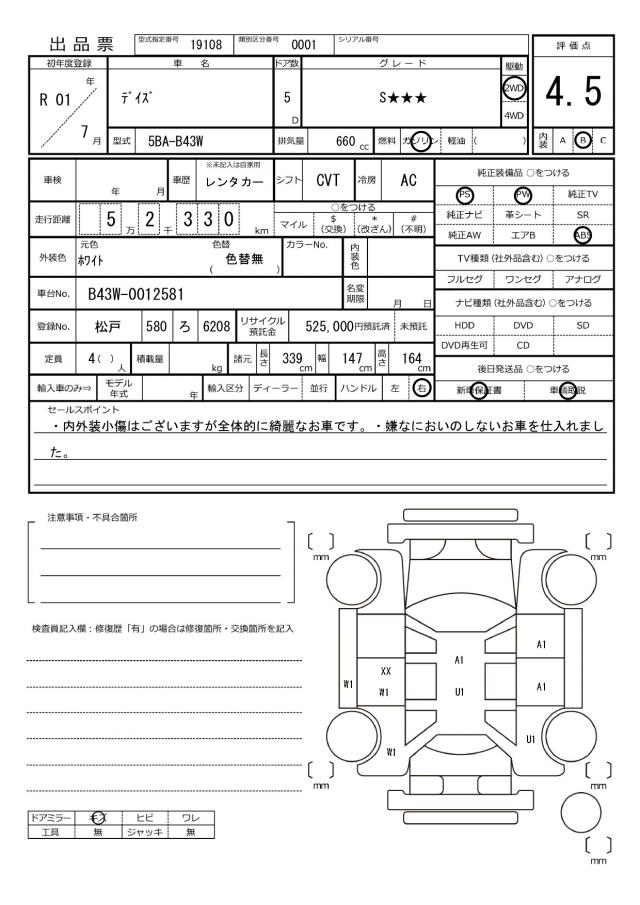 出品票 型式指定番号 19108 類別区分番号 0001 シリアル番号
評価点
4.5
内装 A B C
初年度登録 車名 ドア数 グレード 駆動
R 01 年 7 月 デイズ 5 D S★★★ 2WD 4WD
型式 5BA-B43W 排気量 660 cc 燃料 ガソリン 軽油 ( )
車検 年 月 車歴 ※未記入は自家用 レンタカー シフト CVT 冷房 AC
走行距離 5 万 2 千 3 3 0 km
○をつける
マイル $ (交換) * (改ざん) # (不明)
外装色 元色 ホワイト 色替 ( 色替無 ) カラーNo. 内装色
車台No. B43W-0012581 名変期限 月 日
登録No. 松戸 580 ろ 6208 リサイクル預託金 525,000円預託済 未預託
定員 4( ) 人 積載量 kg 諸元 長さ 339 cm 幅 147 cm 高さ 164 cm
輸入車のみ⇒ モデル年式 年 輸入区分 ディーラー 並行 ハンドル 左 右
純正装備品 ○をつける
PS PW 純正TV
純正ナビ 革シート SR
純正AW エアB ABS
TV種類 (社外品含む) ○をつける
フルセグ ワンセグ アナログ
ナビ種類 (社外品含む) ○をつける
HDD DVD SD
DVD再生可 CD
後日発送品 ○をつける
新車保証書 車輌取説
セールスポイント
・内外装小傷はございますが全体的に綺麗なお車です。・嫌なにおいのしないお車を仕入れまし
た。
注意事項・不具合箇所
検査員記入欄：修復歴「有」の場合は修復箇所・交換箇所を記入
ドアミラー キズ ヒビ ワレ
工具 無 ジャッキ 無
〔 〕 mm
〔 〕 mm
A1
A1
XX
W1
W1
A1
U1
W1
U1
〔 〕 mm
〔 〕 mm
〔 〕 mm